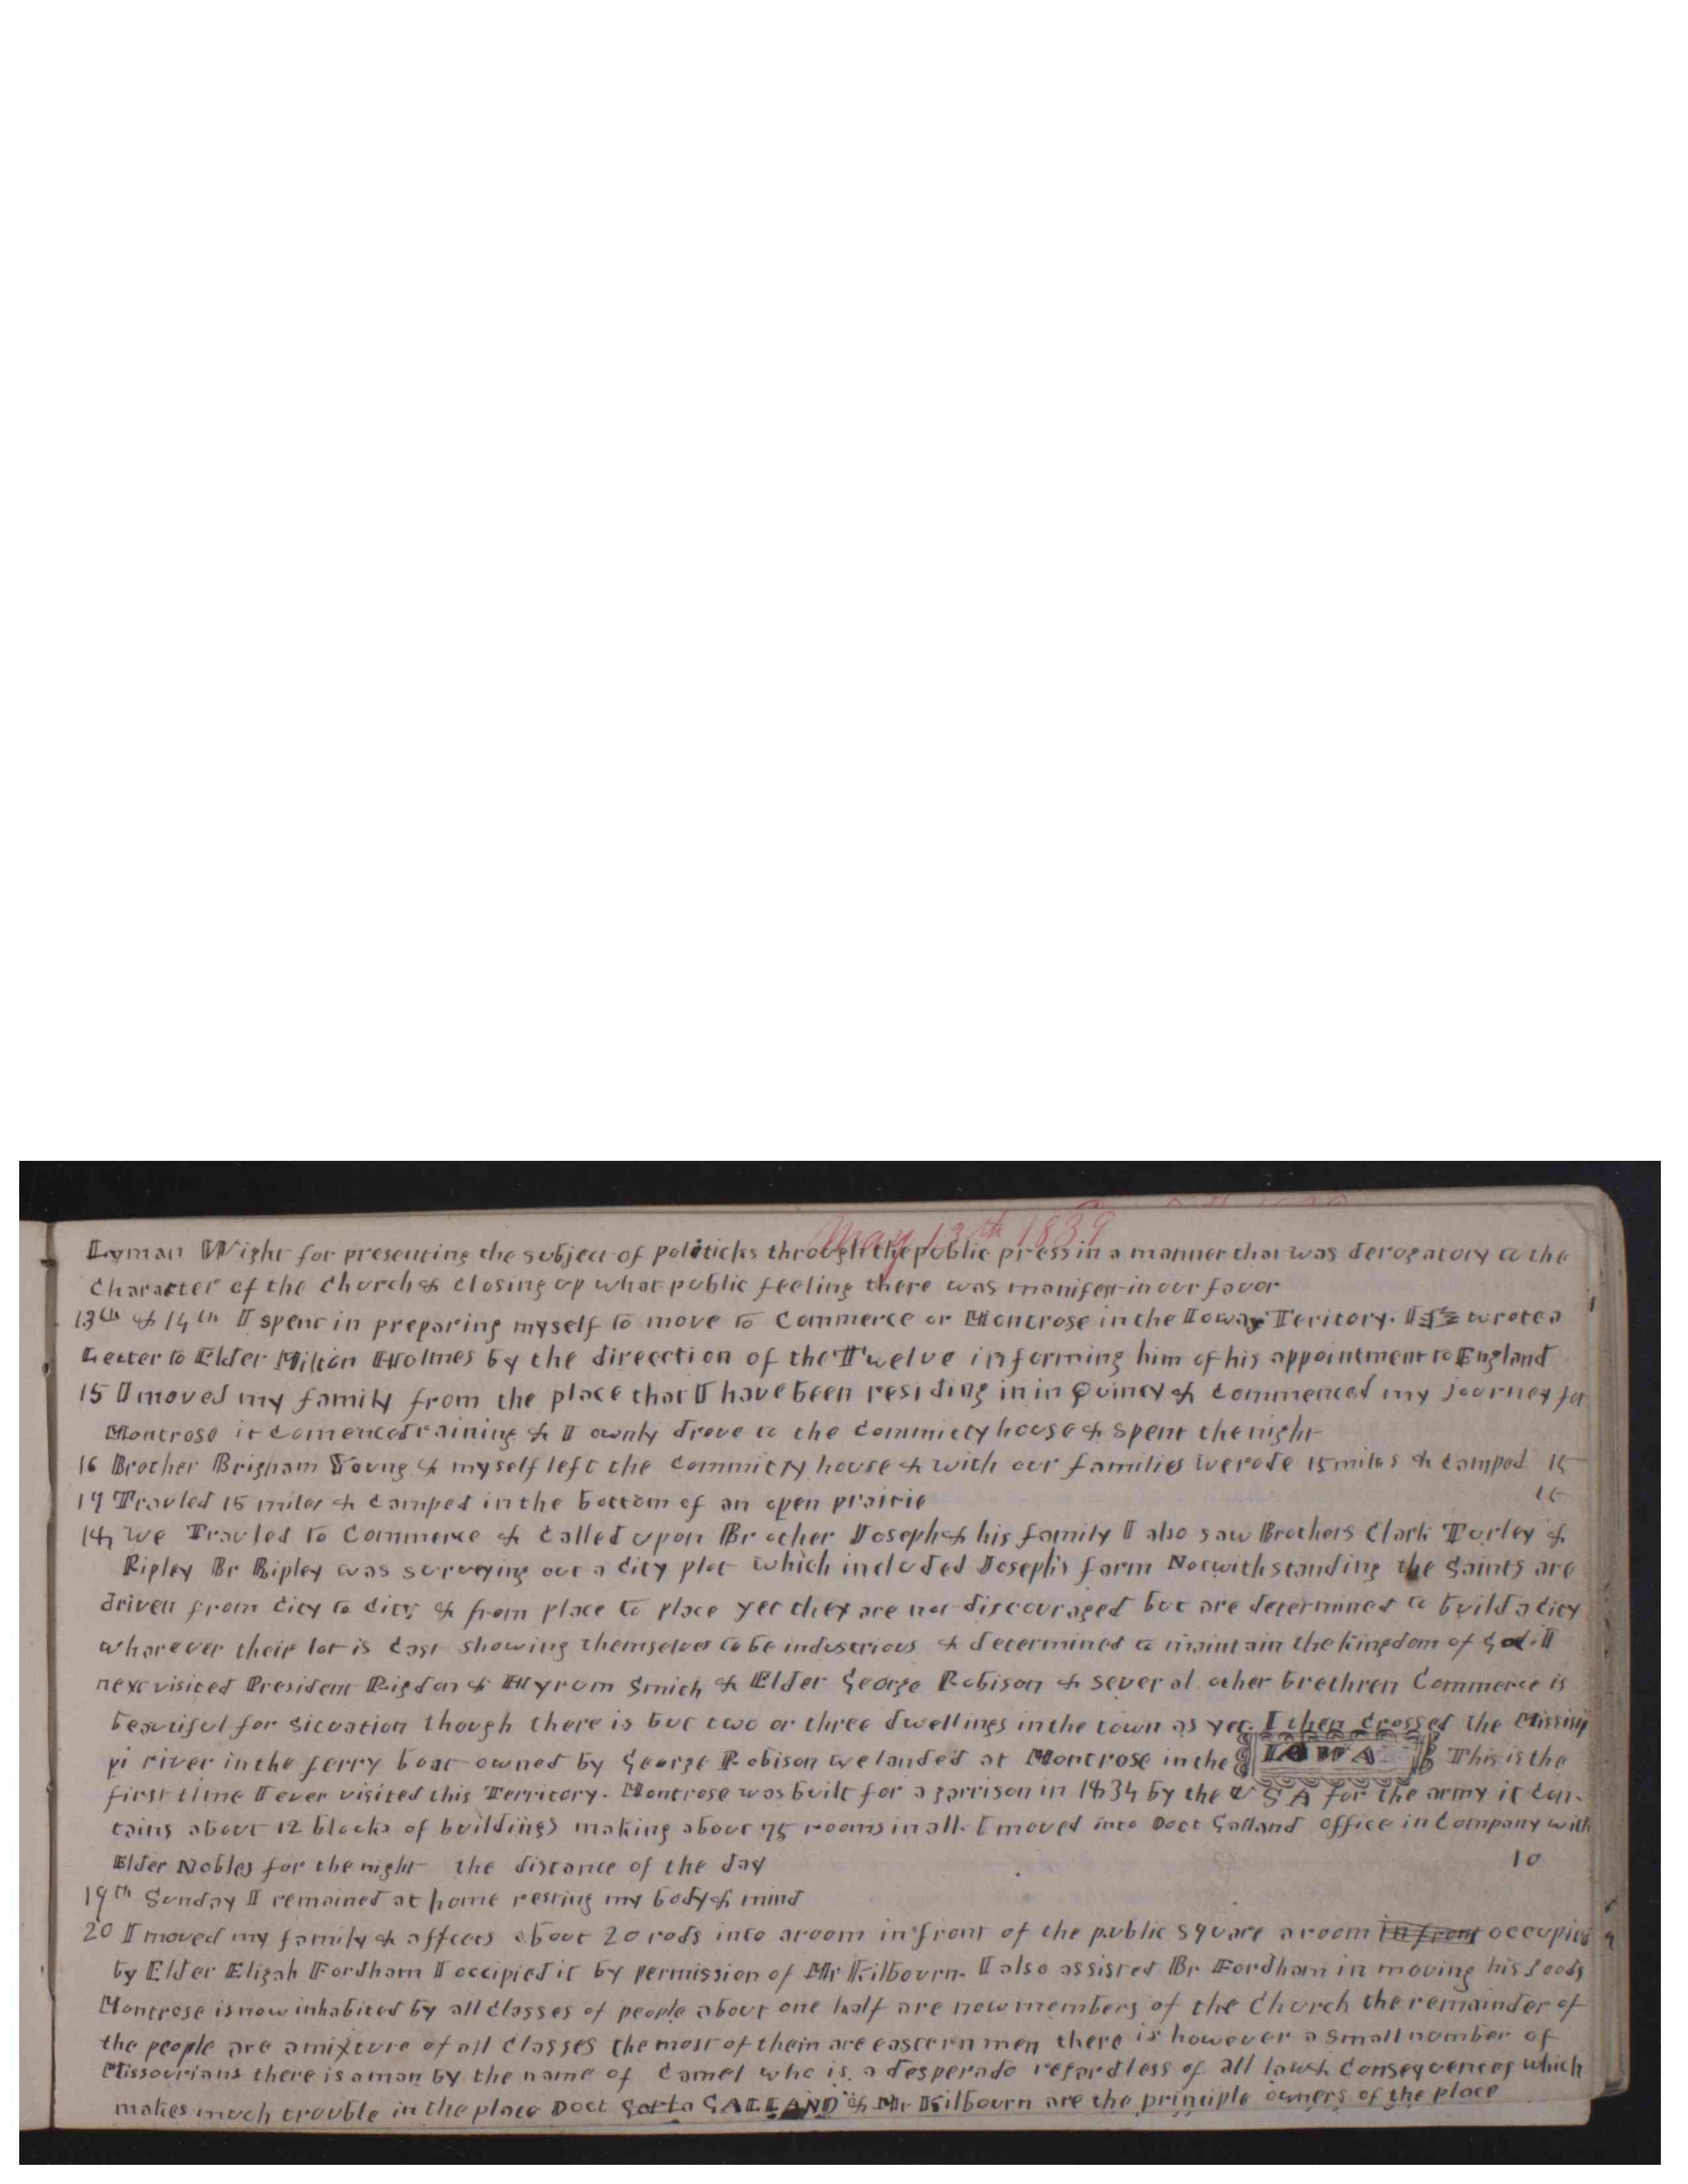 May 13th 1839
Lyman Wight for presenting the subject of politicks through the public press in a manner that was derogatory to the
Character of the Church & closing up what public feeling there was manifest in our favor
13th & 14th I spent in preparing myself to move to Commerce or Montrose in the Ioway Teritory. I wrote a
Letter to Elder Milton Holmes by the direcction of the Twelve informing him of his appointment to England
15 I moved my family from the place that I have been residing in in Quincy & commenced my journey for
Montrose it comenced raining & I ownly drove to the committy house & spent the night
16 Brother Brigham Young & myself left the committy house & with our families we rode 15 miles & camped 15
17 Travled 15 miles & camped in the bottom of an open prairie 15
18 We Travled to Commerce & called upon Brother Joseph & his family I also saw Brothers Clark Turley &
Ripley Br Ripley was surveying out a city plot which included Joseph's farm Notwithstanding the Saints are
driven from city to city & from place to place yet they are not discouraged but are determined to build a city
wharever their lot is cast showing themselves to be industrious & determined to maintain the kingdom of God. I
next visited President Rigdon & Hyrum Smith & Elder George Robison & several other brethren Commerce is
beautiful for situation though there is but two or three dwellings in the town as yet. I then crossed the Missisip
pi river in the ferry boat owned by George Robison we landed at Montrose in the IOWA This is the
first time I ever visited this Territory. Montrose was built for a garrison in 1834 by the U S A for the army it con-
tains about 12 blocks of buildings making about 75 rooms in all. I moved into Doct Galland office in company with
Elder Nobles for the night the distance of the day 10
19th Sunday I remained at home resting my body & mind
20 I moved my family & affects about 20 rods into a room in front of the public square a room in front occupied
by Elder Elijah Fordham I occipied it by permission of Mr Kilbourn. I also assisted Br Fordham in moving his goods
Montrose is now inhabited by all classes of people about one half are now members of the Church the remainder of
the people are a mixture of all classes the most of them are eastern men there is however a small number of
Missourians there is a man by the name of Camel who is a desperado regardless of all laws & consequences which
makes much trouble in the place Doct GALLAND & Mr Kilbourn are the principle owners of the place